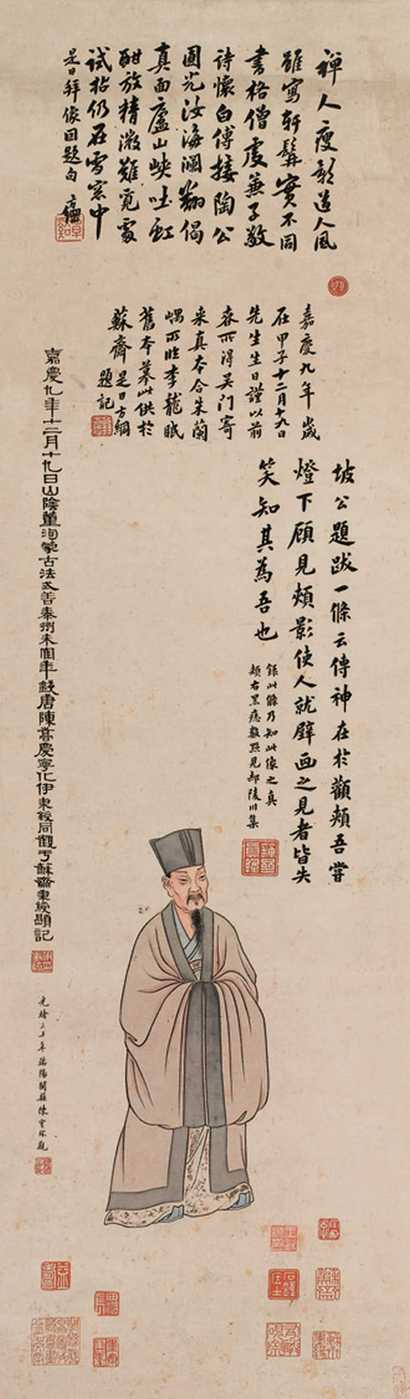 禪人瘦影道人風
雖寫軒髯實不同
書格僧虔兼子敬
詩懷白傅接陶公
圓光汝海瀾翻偈
真面廬山峽吐虹
酣放精微難覓處
試拈仍在雪窓中
是日拜像回題句
嘉慶九年歲
在甲子十二月十九日
先生生日謹以前
春所得吳門寄
來真本合朱蘭
嵎所臨李龍眠
舊本摹此供於
蘇齋是日方綱
題記
坡公題跋一條云傳神在於顴頰吾嘗
燈下顧見頰影使人就壁画之見者皆失
笑知其為吾也
錄此條乃知此像之真
頰右黑痣數點見郝陵川集
嘉慶九年十二月十九日山陰董洵蒙古法式善泰州朱年錢唐陳嵩慶寧化伊秉綬同觀于蘇齋秉綬題記
光緒年端陽閩縣陳寶琛觀